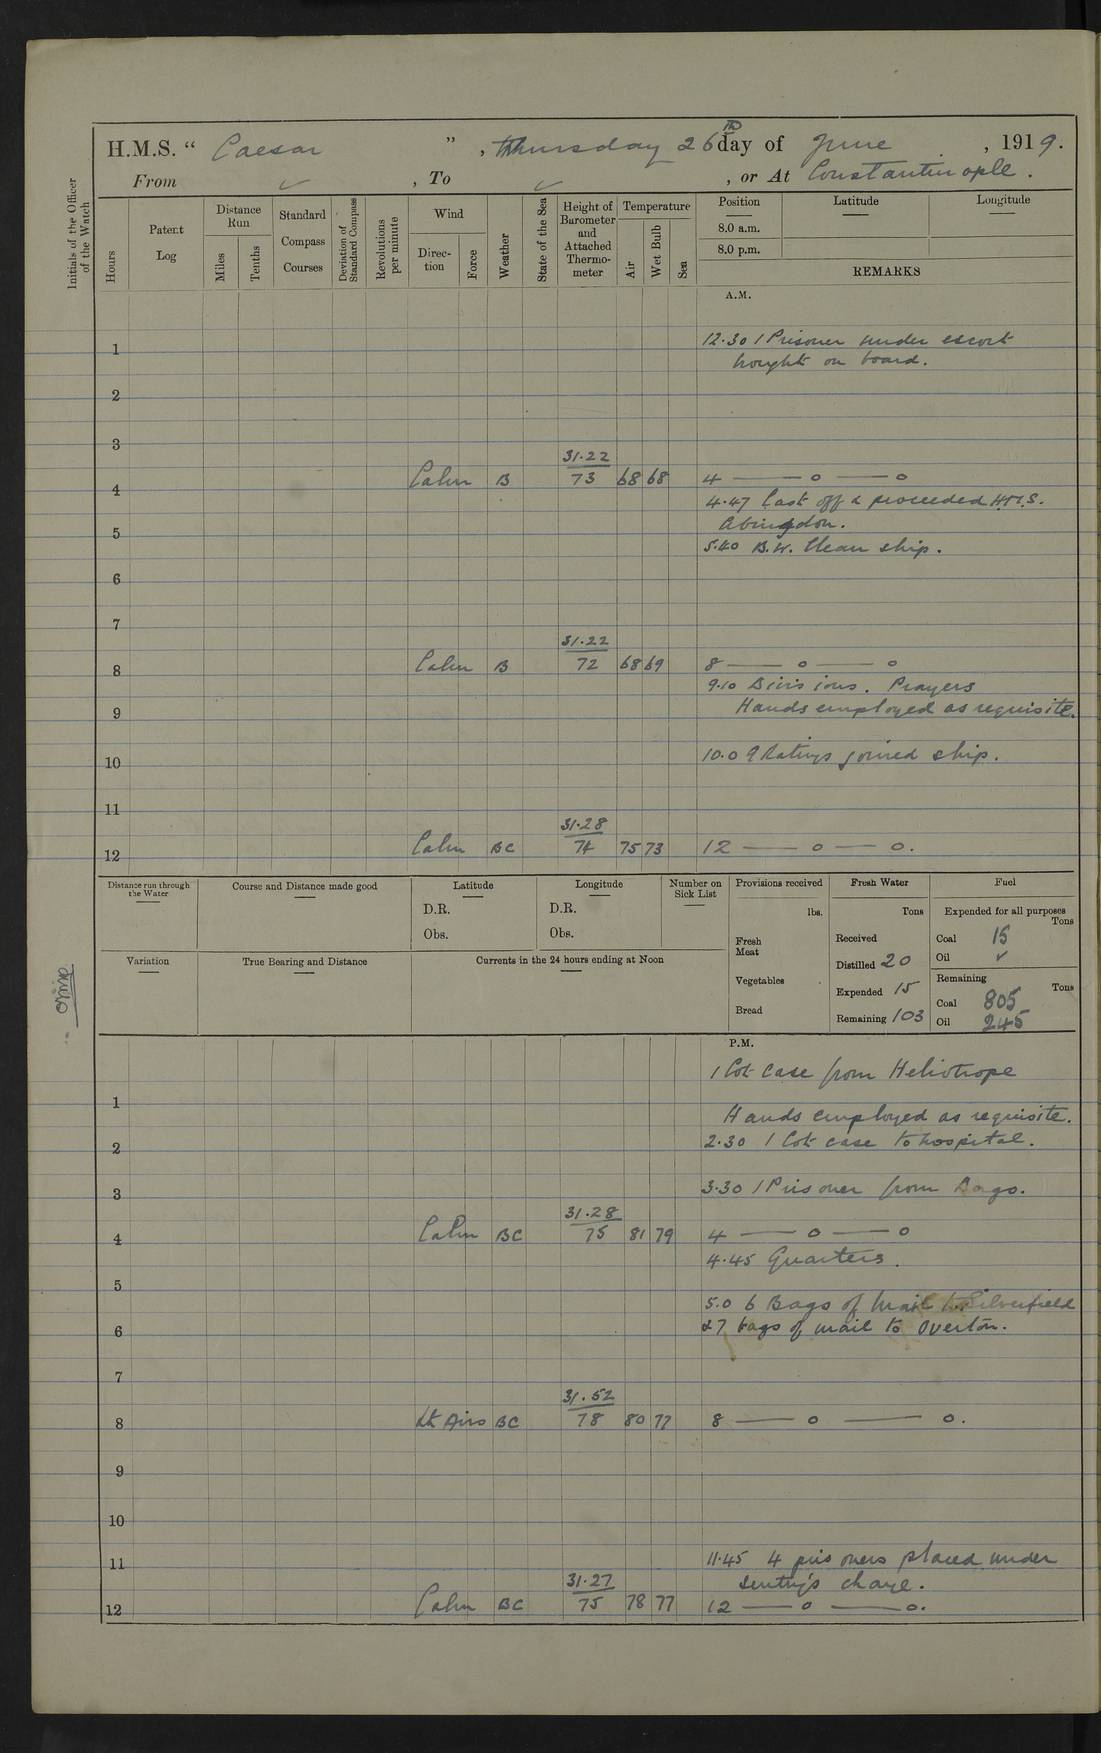 H.M.S. “ Caesar ” , Thursday 26th day of June , 1919.
From ✓ , To ✓ , or At Constantinople .
Initials of the Officer of the Watch
Hours
Patent Log
Distance Run
Miles
Tenths
Standard Compass Courses
Deviation of Standard Compass
Revolutions per minute
Wind
Direc- tion
Force
Weather
State of the Sea
Height of Barometer and Attached Thermo- meter
Temperature
Air
Wet Bulb
Sea
Position
Latitude
Longitude
8.0 a.m.
8.0 p.m.
REMARKS
A.M.
12.30 1 Prisoner under escort
1
brought on board.
2
3
31.22
4 Calm B 73 68 68 4 — o — o
4.47 Cast off & proceeded H.M.S.
Abingdon.
5
5.40 B.W. Clean ship.
6
7
31.22
8 Calm B 72 68 69 8 — o — o
9.10 Divisions. Prayers
9 Hands employed as requisite.
10 10.0 9 Ratings joined ship.
11
31.28
12 Calm BC 74 75 73 12 — o — o.
Distance run through the Water
Course and Distance made good
Latitude
D.R.
Obs.
Longitude
D.R.
Obs.
Number on Sick List
Variation
True Bearing and Distance
Currents in the 24 hours ending at Noon
Provisions received
lbs.
Fresh Meat
Vegetables
Bread
Fresh Water
Tons
Received
Distilled 20
Expended 15
Remaining 103
Fuel
Expended for all purposes
Tons
Coal 15
Oil ✓
Remaining
Tons
Coal 805
Oil 245
P.M.
1 Cot case from Heliotrope
1
Hands employed as requisite.
2 2.30 1 Cot case to hospital.
3 3.30 1 Prisoner from
31.28
4 Calm BC 75 81 79 4 — o — o
4.45 Quarters.
5
5.0 6 Bags of Mail to Silverfield
6 & 7 bags of mail to Overton.
7
31.52
8 Lt Airs BC 78 80 77 8 — o — o.
9
10
11 11.45 4 prisoners placed under
31.27 sentry's charge.
12 Calm BC 75 78 77 12 — o — o.